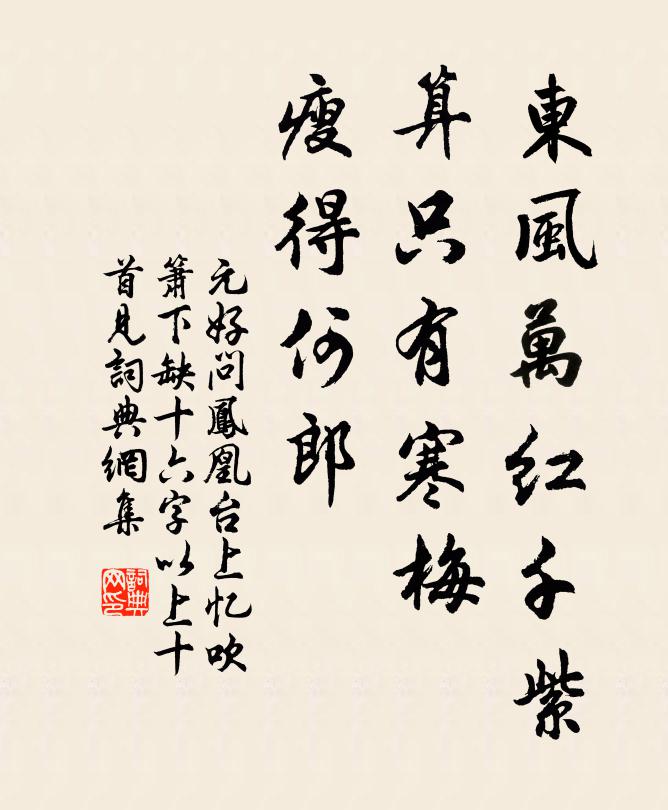 東風萬红千紫
算只有寒梅
瘦得何郎
元好问鳳凰台上忆吹
簫下缺十六字以上十
首見詞典網集
詞典
网印